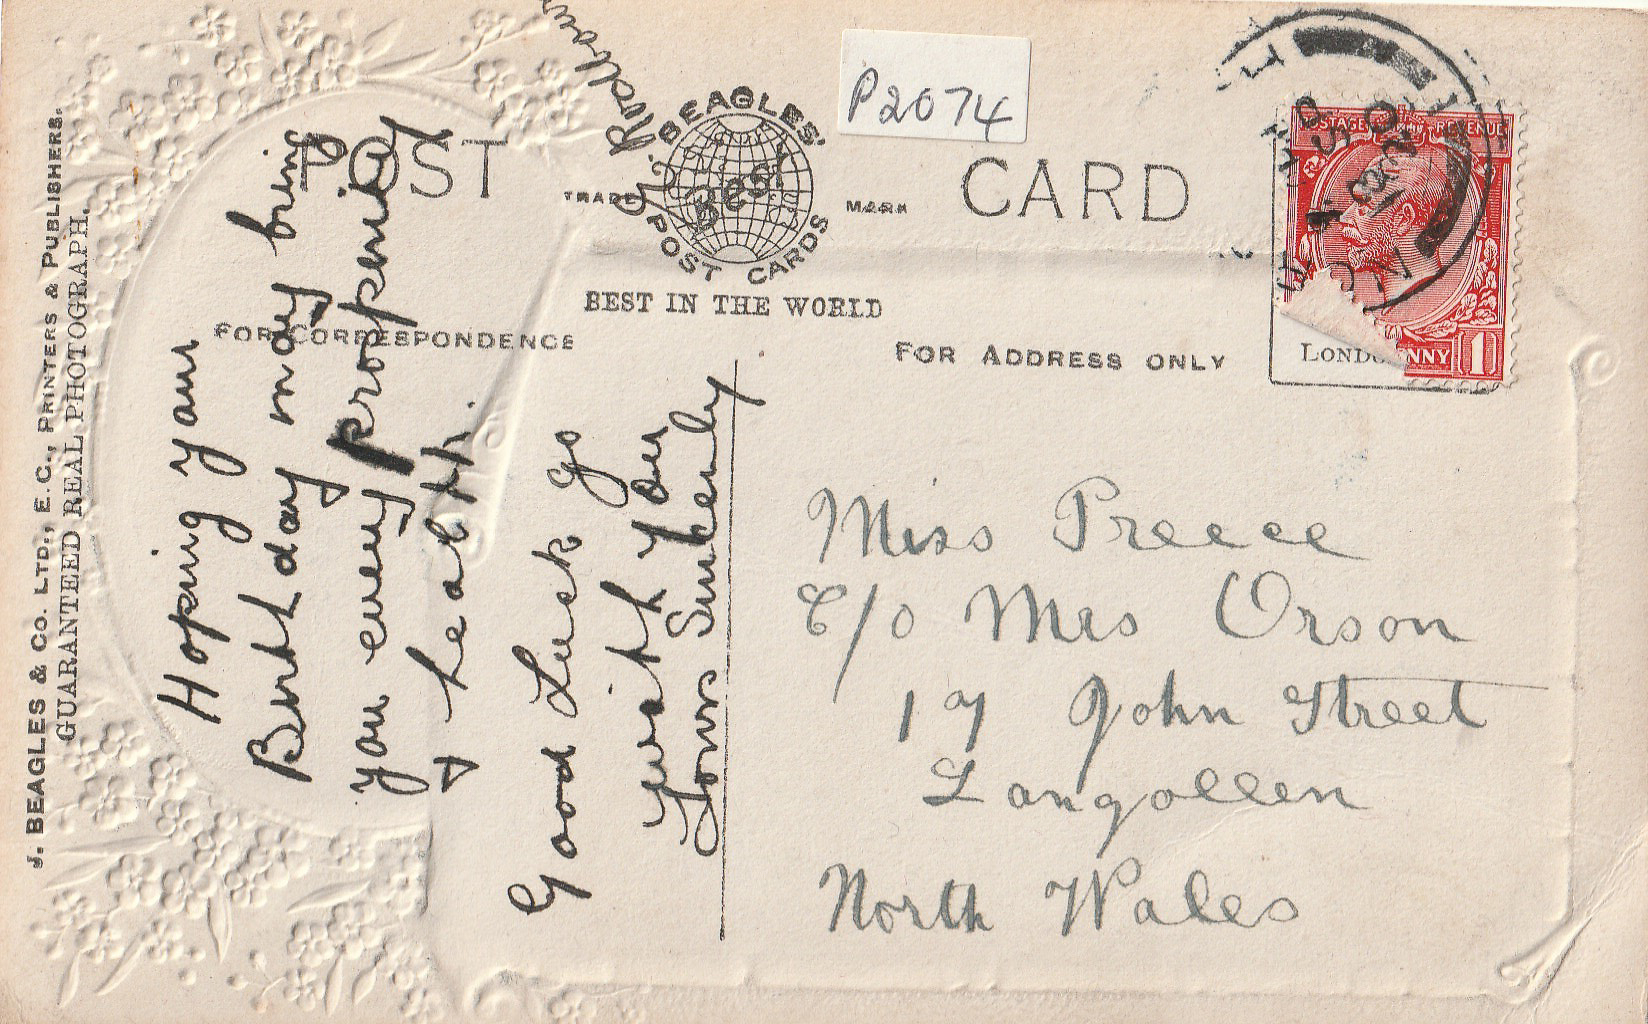 J. BEAGLES & CO. LTD., E.C., PRINTERS & PUBLISHERS.
GUARANTEED REAL PHOTOGRAPH.
POST CARD
BEAGLES'
TRADE MARK
POST CARDS
BEST IN THE WORLD
P2074
FOR CORRESPONDENCE
FOR ADDRESS ONLY
POSTAGE REVENUE
NNY 1
LOND
Hoping your
Birthday may bring
you every prosperity
& health.
Good Luck go
with you
Yours
Miss Preece
C/o Mrs Orson
17 John Street
Langollen
North Wales